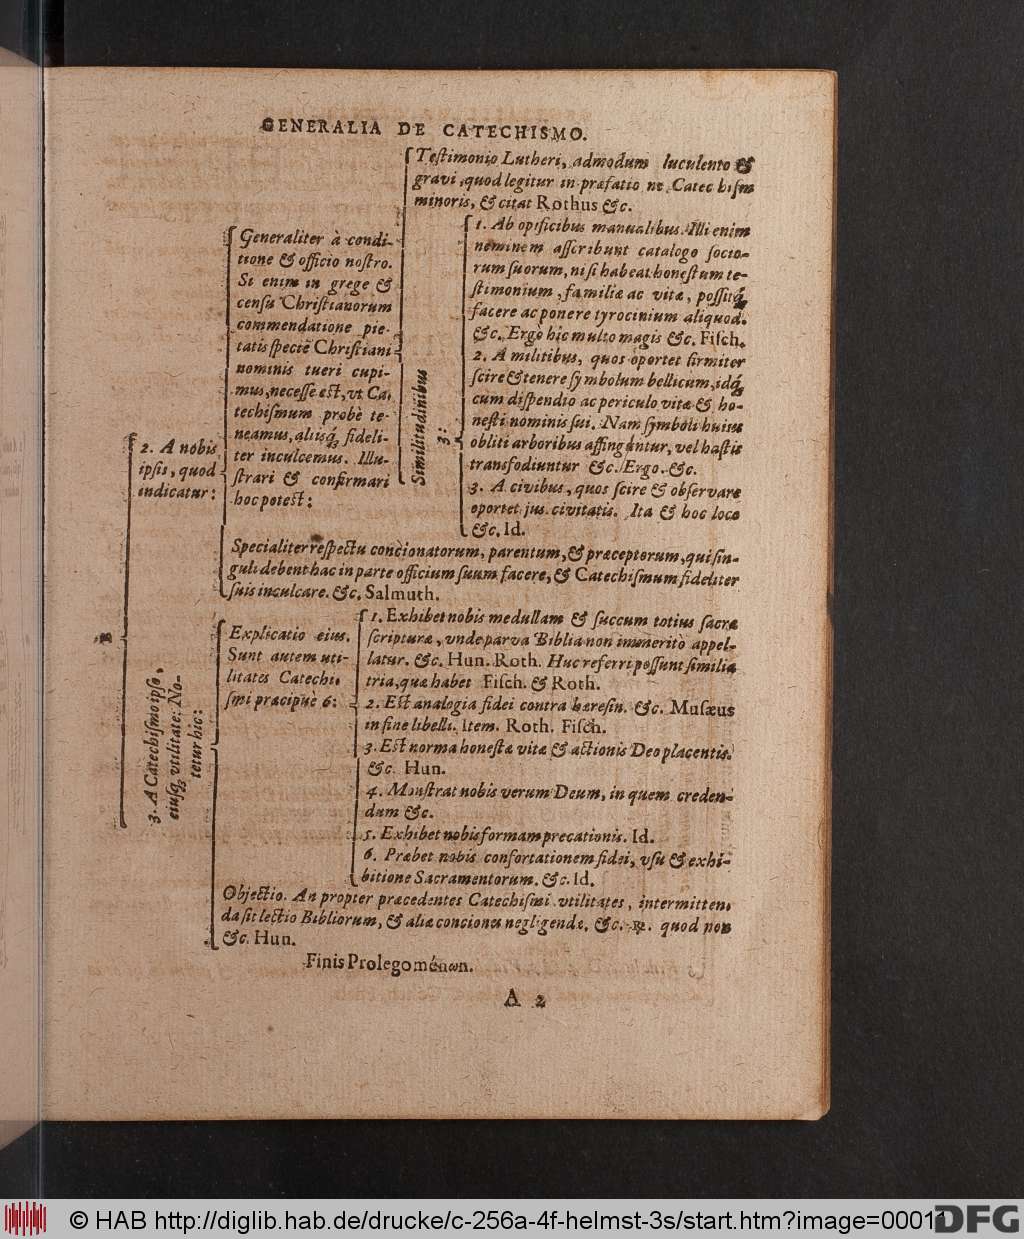 GENERALIA DE CATECHISMO.
Teſtimonio Lutheri, admodum luculento &
gravi, quod legitur in præfatione Catechiſm
minoris, & citat Rothus &c.
Generaliter à condi-
tione & officio noſtro.
Si enim in grege &
cenſu Chriſtianorum
commendatione pie-
tatis ſpeciē Chriſtiani
nominis tueri cupi-
mus, neceſſe eſt, vt Ca-
techiſmum probè te-
neamus, aliisq́ fideli-
ter inculcemus. Illu-
ſtrari & confirmari
hoc poteſt:
Similitudinibus
3:
1. Ab opificibus manualibus. Illi enim
neminem aſſcribunt catalogo ſocio-
rum ſuorum, niſi habeat honeſtum te-
ſtimonium, familiæ ac vitæ, poſſitq́
facere ac ponere tyrocinium aliquod.
&c. Ergò hic multo magis &c. Fiſch.
2. A militibus, quos oportet firmiter
ſcire & tenere ſymbolum bellicum, idq́
cum diſpendio ac periculo vitæ & ho-
neſti nominis ſui. Nam ſymboli huius
obliti arboribus affinguntur, vel haſtis
transfodiuntur &c. Ergo. &c.
3. A civibus, quos ſcire & obſervare
oportet jus civitatis. Ita & hoc loco
&c. Id.
2. A nobis
ipſis, quod
indicatur:
Specialiter reſpectu concionatorum, parentum, & præceptorum, qui ſin-
guli debent hac in parte officium ſuum facere, & Catechiſmum fideliter
ſuis inculcare. &c. Salmuth.
B
3. A Catechiſmo ipſo,
eiusq́ vtilitate: No-
tetur hic:
Explicatio eius.
Sunt autem uti-
litates Catechi-
ſmi præcipuè 6:
1. Exhibet nobis medullam & ſuccum totius ſacræ
ſcripturæ, vnde parva Biblia non immeritò appel-
latur. &c. Hun. Roth. Huc referri poſſunt ſimilia
tria, quæ habet Fiſch. & Roth.
2. Eſt analogia fidei contra hæreſin. &c. Muſæus
in fine libelli. Item. Roth. Fiſch.
3. Eſt norma honeſtæ vitæ & actionis Deo placentis.
&c. Hun.
4. Monſtrat nobis verum Deum, in quem creden-
dum &c.
5. Exhibet nobis formam precationis. Id.
6. Præbet nobis confortationem fidei, vſu & exhi-
bitione Sacramentorum. &c. Id.
Objectio. An propter præcedentes Catechiſmi vtilitates, intermitten-
da ſit lectio Bibliorum, & aliæ conciones negligendæ. &c. ℞. quod non
&c. Hun.
Finis Prolegoménωn.
A 2
© HAB http://diglib.hab.de/drucke/c-256a-4f-helmst-3s/start.htm?image=00011
DFG